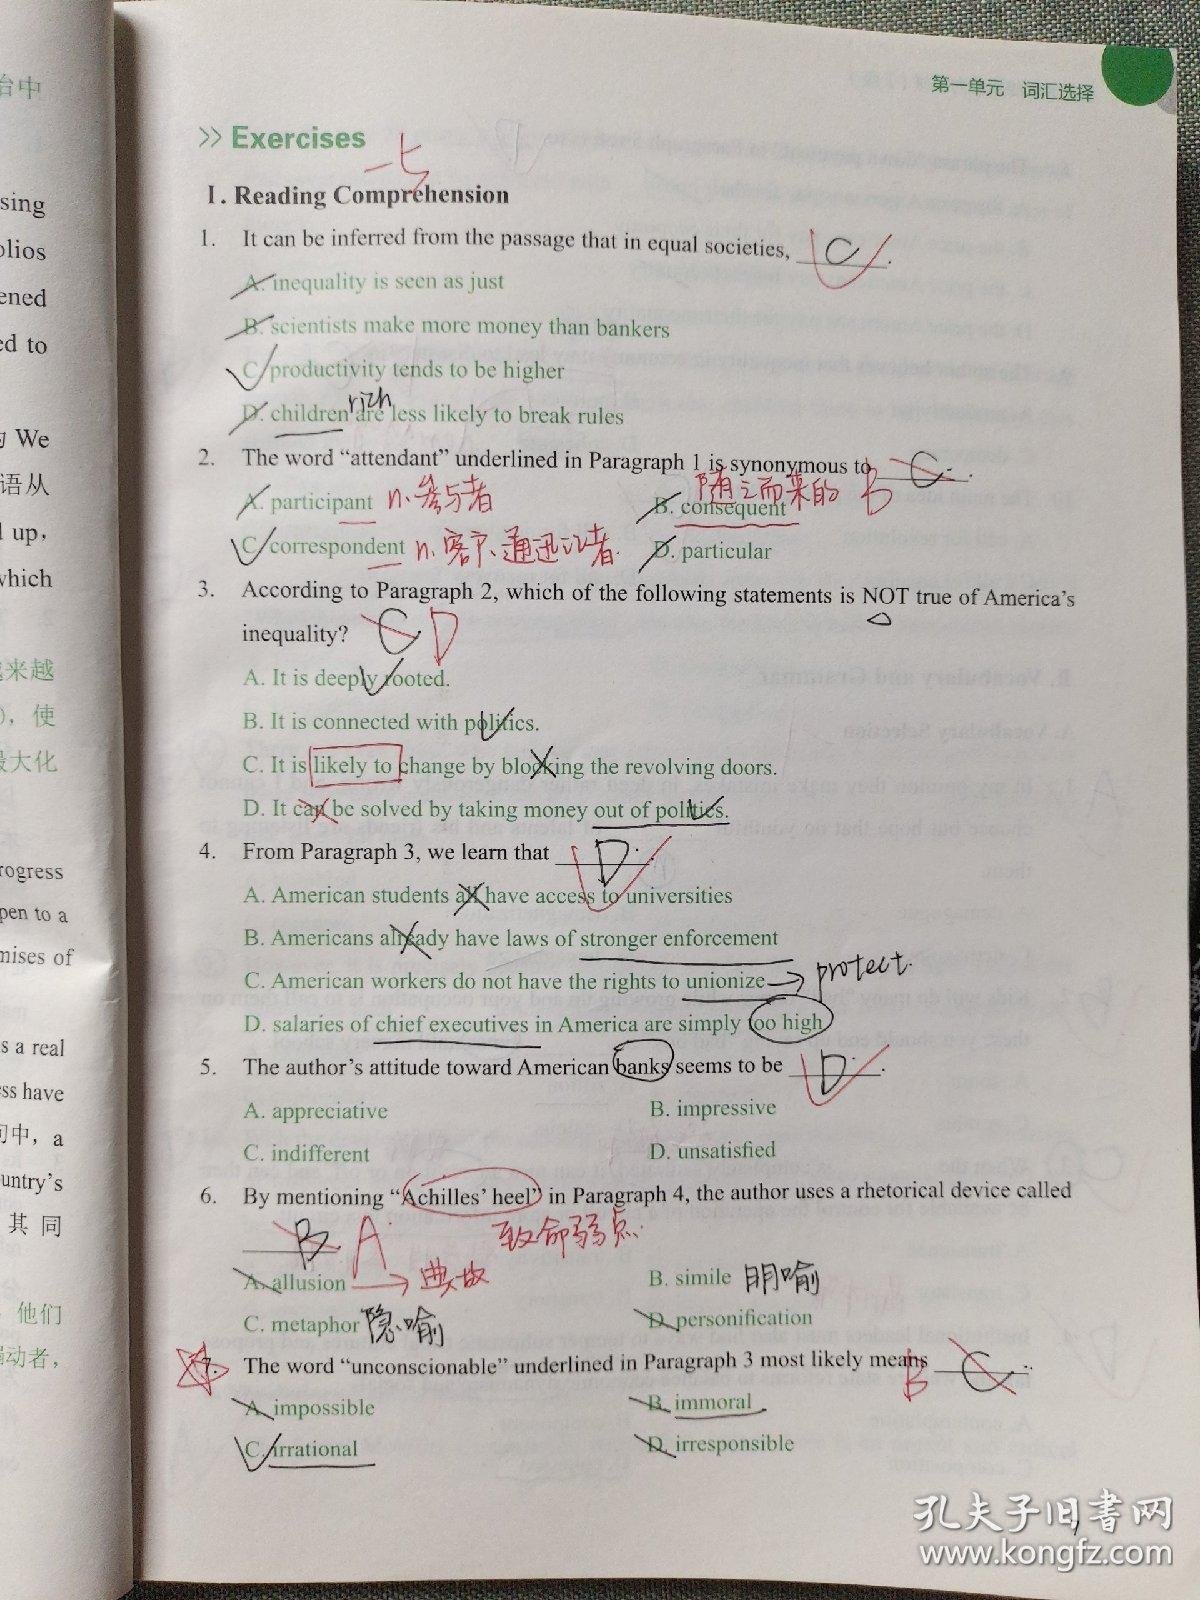 台中
第一单元 词汇选择
>> Exercises
一七
I. Reading Comprehension
sing
olios
ened
ed to
We
语从
d up,
which
越来越
), 使
最大化
rogress
pen to a
mises of
s a real
ess have
句中, a
untry's
其同
他们
弱动者,
1. It can be inferred from the passage that in equal societies, C.
A. inequality is seen as just
B. scientists make more money than bankers
C. productivity tends to be higher
rich
D. children are less likely to break rules
2. The word “attendant” underlined in Paragraph 1 is synonymous to B C.
A. participant n.参与者
随之而来的
B. consequent
C. correspondent n.客户、通迅记者.
D. particular
3. According to Paragraph 2, which of the following statements is NOT true of America's
inequality? C D
A. It is deeply rooted.
B. It is connected with politics.
C. It is likely to change by blocking the revolving doors.
D. It can be solved by taking money out of politics.
4. From Paragraph 3, we learn that D.
A. American students all have access to universities
B. Americans already have laws of stronger enforcement
C. American workers do not have the rights to unionize → protect.
D. salaries of chief executives in America are simply too high
5. The author's attitude toward American banks seems to be D.
A. appreciative
B. impressive
C. indifferent
D. unsatisfied
6. By mentioning “Achilles' heel” in Paragraph 4, the author uses a rhetorical device called
B A. 致命弱点.
A. allusion → 典故
B. simile 明喻
C. metaphor 隐喻
D. personification
7. The word “unconscionable” underlined in Paragraph 3 most likely means B C.
A. impossible
B. immoral
C. irrational
D. irresponsible
孔夫子旧书网
www.kongfz.com